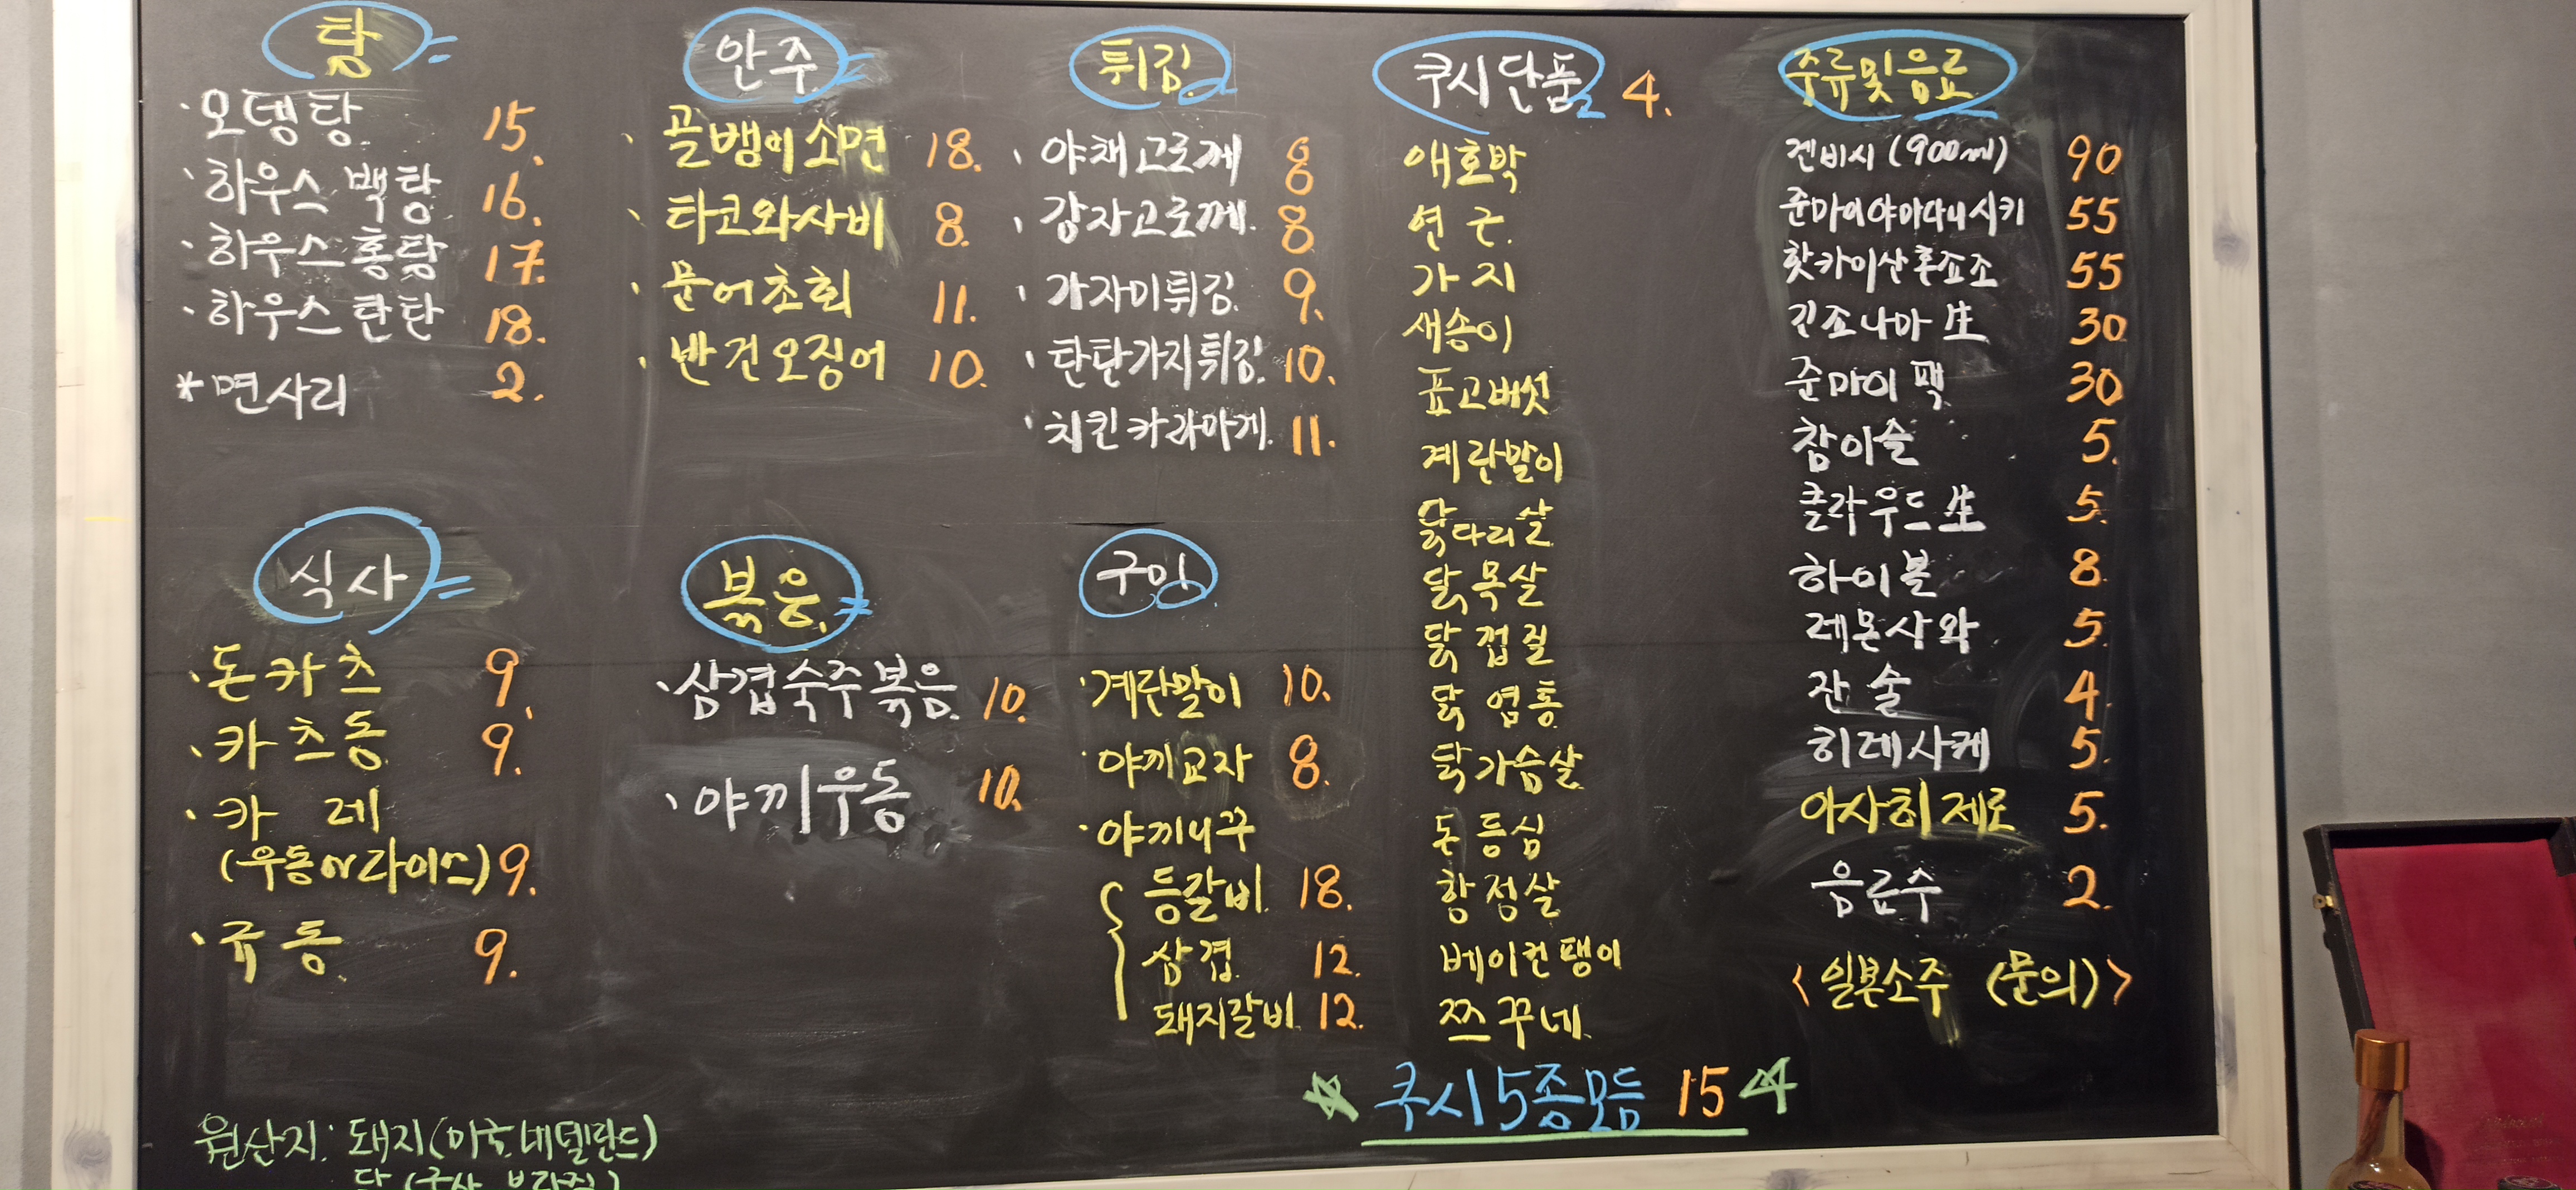 탕
· 오뎅탕 15.
· 하우스 백탕 16.
· 하우스 홍탕 17.
· 하우스 탄탄 18.
* 면사리 2.
안주
· 골뱅이 소면 18.
· 타코와사비 8.
· 문어초회 11.
· 반건오징어 10.
튀김
· 야채고로께 8
· 감자고로께. 8
· 가자미튀김. 9.
· 탄탄가지튀김. 10.
· 치킨 카라아게. 11.
쿠시단품 4.
애호박
연근.
가지
새송이
표고버섯
계란말이
닭다리살
닭목살
닭껍질
닭염통
닭가슴살
돈등심
항정살
베이컨팽이
쯔꾸네.
☆ 쿠시 5종모듬 15 ☆
주류및음료
겐비시 (900ml) 90
준마이야마다니시키 55
홋카이산혼죠조 55
긴죠나마 生 30
준마이 팩 30
참이슬 5.
클라우드 生 5.
하이볼 8.
레몬사와 5.
잔술 4.
히레사케 5.
아사히 제로 5.
음료수 2.
<일본소주 (문의)>
식사
· 돈카츠 9.
· 카츠동 9.
· 카레
(우동or라이스) 9.
· 규동. 9.
볶음.
· 삼겹숙주볶음. 10.
· 야끼우동 10.
구이
· 계란말이 10.
· 야끼교자 8.
· 야끼니꾸
등갈비. 18.
삼겹. 12.
돼지갈비. 12.
원산지: 돼지(미국.네델란드)
닭 (국산, 브라질)